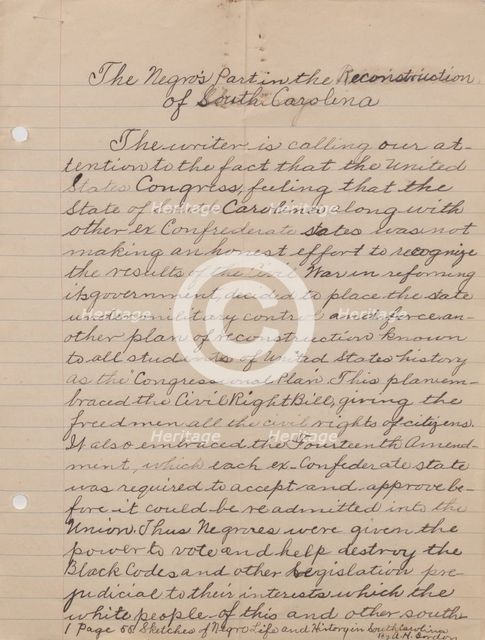 The Negro's Part in the Reconstruction
of South Carolina
The writer is calling our at-
tention to the fact that the United
States Congress, feeling that the
State of South Carolina along with
other ex Confrederate states was not
making an honest effort to recognize
the results of the Civil War in reforming
its government, decided to place the state
under military control and force an-
other plan of reconstruction known
to all students of United States history
as the "Congressional Plan". This plan em-
braced the Civil Right Bill, giving the
freedmen all the civil rights of citizens.
It also embraced the Fourteenth Amend-
ment, which each ex-Confederate state
was required to accept and approve be-
fore it could be readmitted into the
Union. Thus Negroes were given the
power to vote and help destroy the
Black Codes and other legislation pre-
judicial to their interests which the
white people of this and other south
1 Page 55 Sketches of Negro Life and History in South Carolina
By A.H. Gordon
Heritage
Heritage
Heritage
Heritage
Heritage
Heritage
C